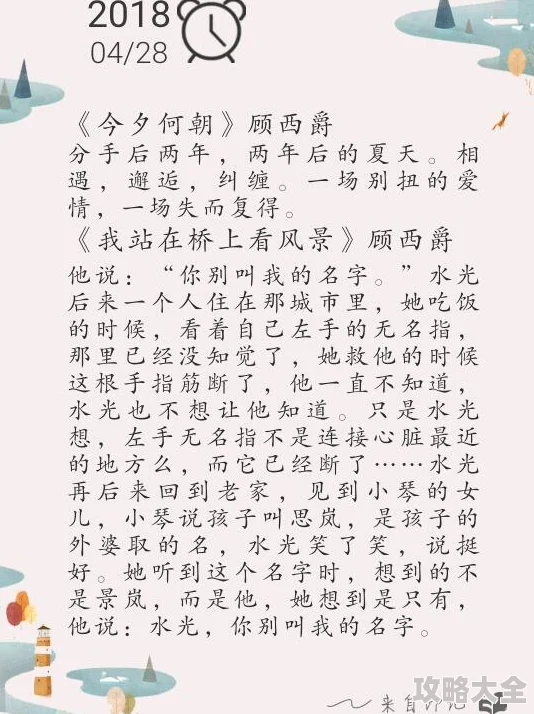 2018
04/28
《今夕何朝》顾西爵
分手后两年，两年后的夏天。相
遇，邂逅，纠缠。一场别扭的爱
情，一场失而复得。
《我站在桥上看风景》顾西爵
他说：“你别叫我的名字。”水光
后来一个人住在那城市里，她吃饭
的时候，看着自己左手的无名指，
那里已经没知觉了，她救他的时候
这根手指筋断了，他一直不知道，
水光也不想让他知道。只是水光
想，左手无名指不是连接心脏最近
的地方么，而它已经断了……水光
再后来回到老家，见到小琴的女
儿，小琴说孩子叫思岚，是孩子的
外婆取的名，水光笑了笑，说挺
好。她听到这个名字时，想到的不
是景岚，而是他，她想到是只有，
他说：水光，你别叫我的名字。
来自
攻略大全